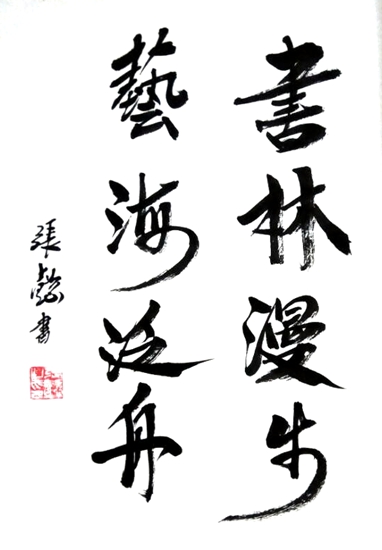 書林漫步
藝海泛舟
張懿書